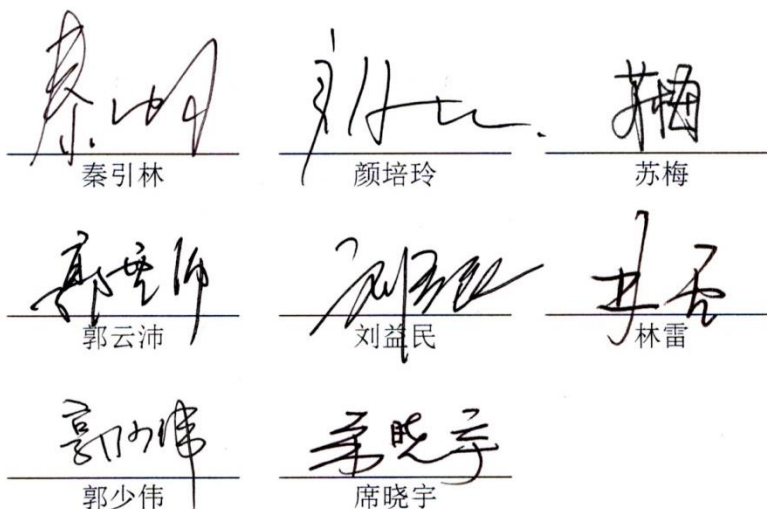 秦引林 颜培玲 苏梅
郭云沛 刘益民 林雷
郭少伟 席晓宇